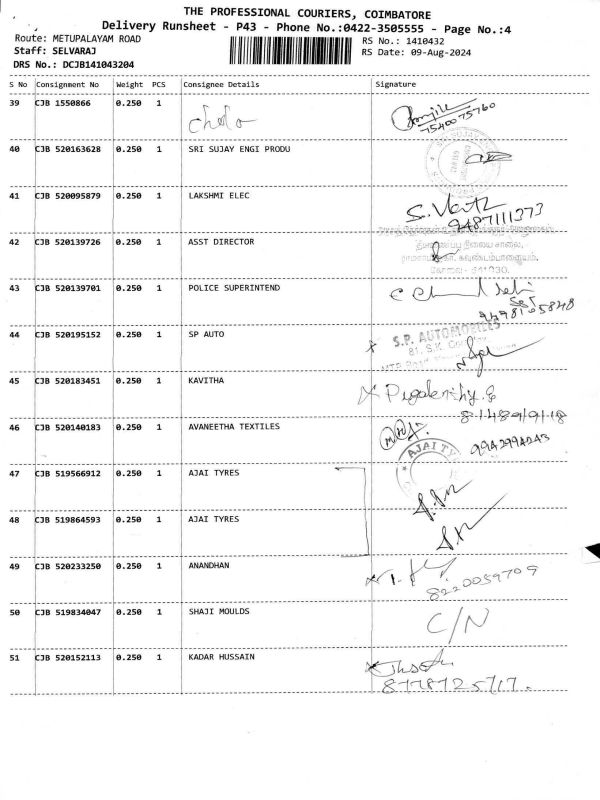 THE PROFESSIONAL COURIERS, COIMBATORE
Delivery Runsheet - P43 - Phone No.:0422-3505555 - Page No.:4
Route: METUPALAYAM ROAD
RS No.: 1410432
Staff: SELVARAJ
RS Date: 09-Aug-2024
DRS No.: DCJB141043204
S No Consignment No Weight PCS Consignee Details Signature
39 CJB 1550866 0.250 1
7540075760
40 CJB 520163628 0.250 1 SRI SUJAY ENGI PRODU
41 CJB 520095879 0.250 1 LAKSHMI ELEC
9487111373
42 CJB 520139726 0.250 1 ASST DIRECTOR
43 CJB 520139701 0.250 1 POLICE SUPERINTEND
44 CJB 520195152 0.250 1 SP AUTO
S.P. AUTOMOBILES
45 CJB 520183451 0.250 1 KAVITHA
46 CJB 520140183 0.250 1 AVANEETHA TEXTILES
AJAI TY
47 CJB 519566912 0.250 1 AJAI TYRES
48 CJB 519864593 0.250 1 AJAI TYRES
49 CJB 520233250 0.250 1 ANANDHAN
8220059709
50 CJB 519834047 0.250 1 SHAJI MOULDS
C/N
51 CJB 520152113 0.250 1 KADAR HUSSAIN
8778725717.